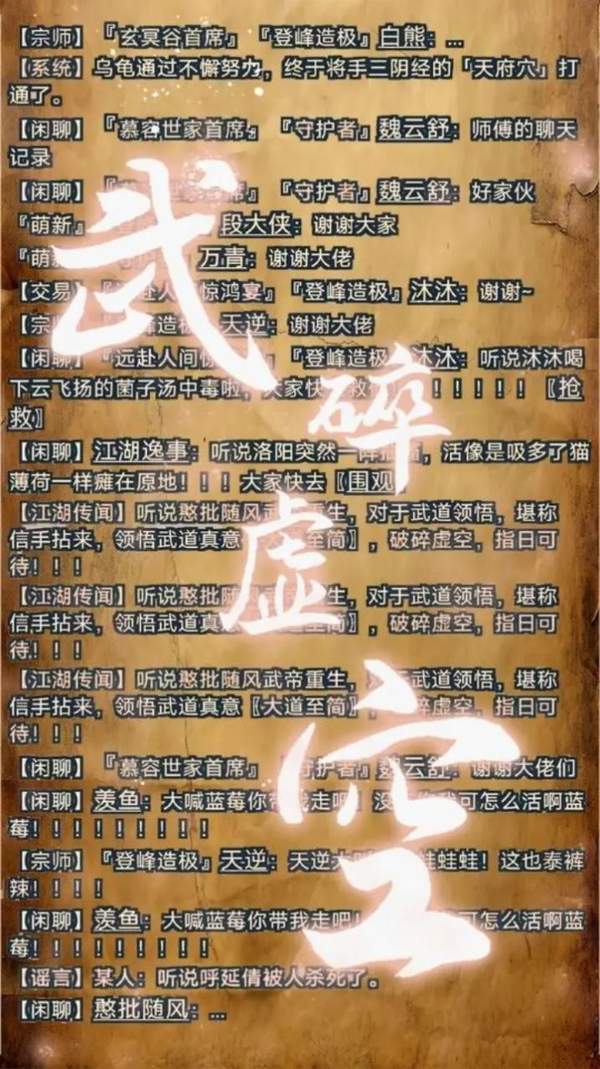 【宗师】『玄冥谷首席』『登峰造极』白熊：...
【系统】乌龟通过不懈努力，终于将手三阴经的「天府穴」打
通了。
【闲聊】『慕容世家首席』『守护者』魏云舒：师傅的聊天
记录
【闲聊】 首席』『守护者』魏云舒：好家伙
『萌新』 段大侠：谢谢大家
『萌 万青：谢谢大佬
【交易】 赴人 惊鸿宴』『登峰造极』沐沐：谢谢~
【宗 峰造极』天逆：谢谢大佬
【闲聊】『远赴人间惊 『登峰造极』沐沐：听说沐沐喝
下云飞扬的菌子汤中毒啦，大家快 ！！！！！〖抢
救〗
【闲聊】江湖逸事：听说洛阳突然一阵 ，活像是吸多了猫
薄荷一样瘫在原地！！！大家快去〖围观〗
【江湖传闻】听说憨批随风武帝重生，对于武道领悟，堪称
信手拈来，领悟武道真意〖大道至简〗，破碎虚空，指日可
待！！！
【江湖传闻】听说憨批随风武帝重生，对于武道领悟，堪称
信手拈来，领悟武道真意〖大道至简〗，破碎虚空，指日可
待！！！
【江湖传闻】听说憨批随风武帝重生，对于武道领悟，堪称
信手拈来，领悟武道真意〖大道至简〗， 碎虚空，指日可
待！！！
【闲聊】『慕容世家首席』『守护者』魏云舒：谢谢大佬们
【闲聊】羡鱼：大喊蓝莓你带我走吧！没 我可怎么活啊蓝
莓！！！！！！！！！
【宗师】『登峰造极』天逆：天逆大 蛙蛙蛙！这也泰裤
辣！！！！
【闲聊】羡鱼：大喊蓝莓你带我走吧！ 可怎么活啊蓝
莓！！！！！！！！！
【谣言】某人：听说呼延倩被人杀死了。
【闲聊】憨批随风：...
武
碎
虚
空